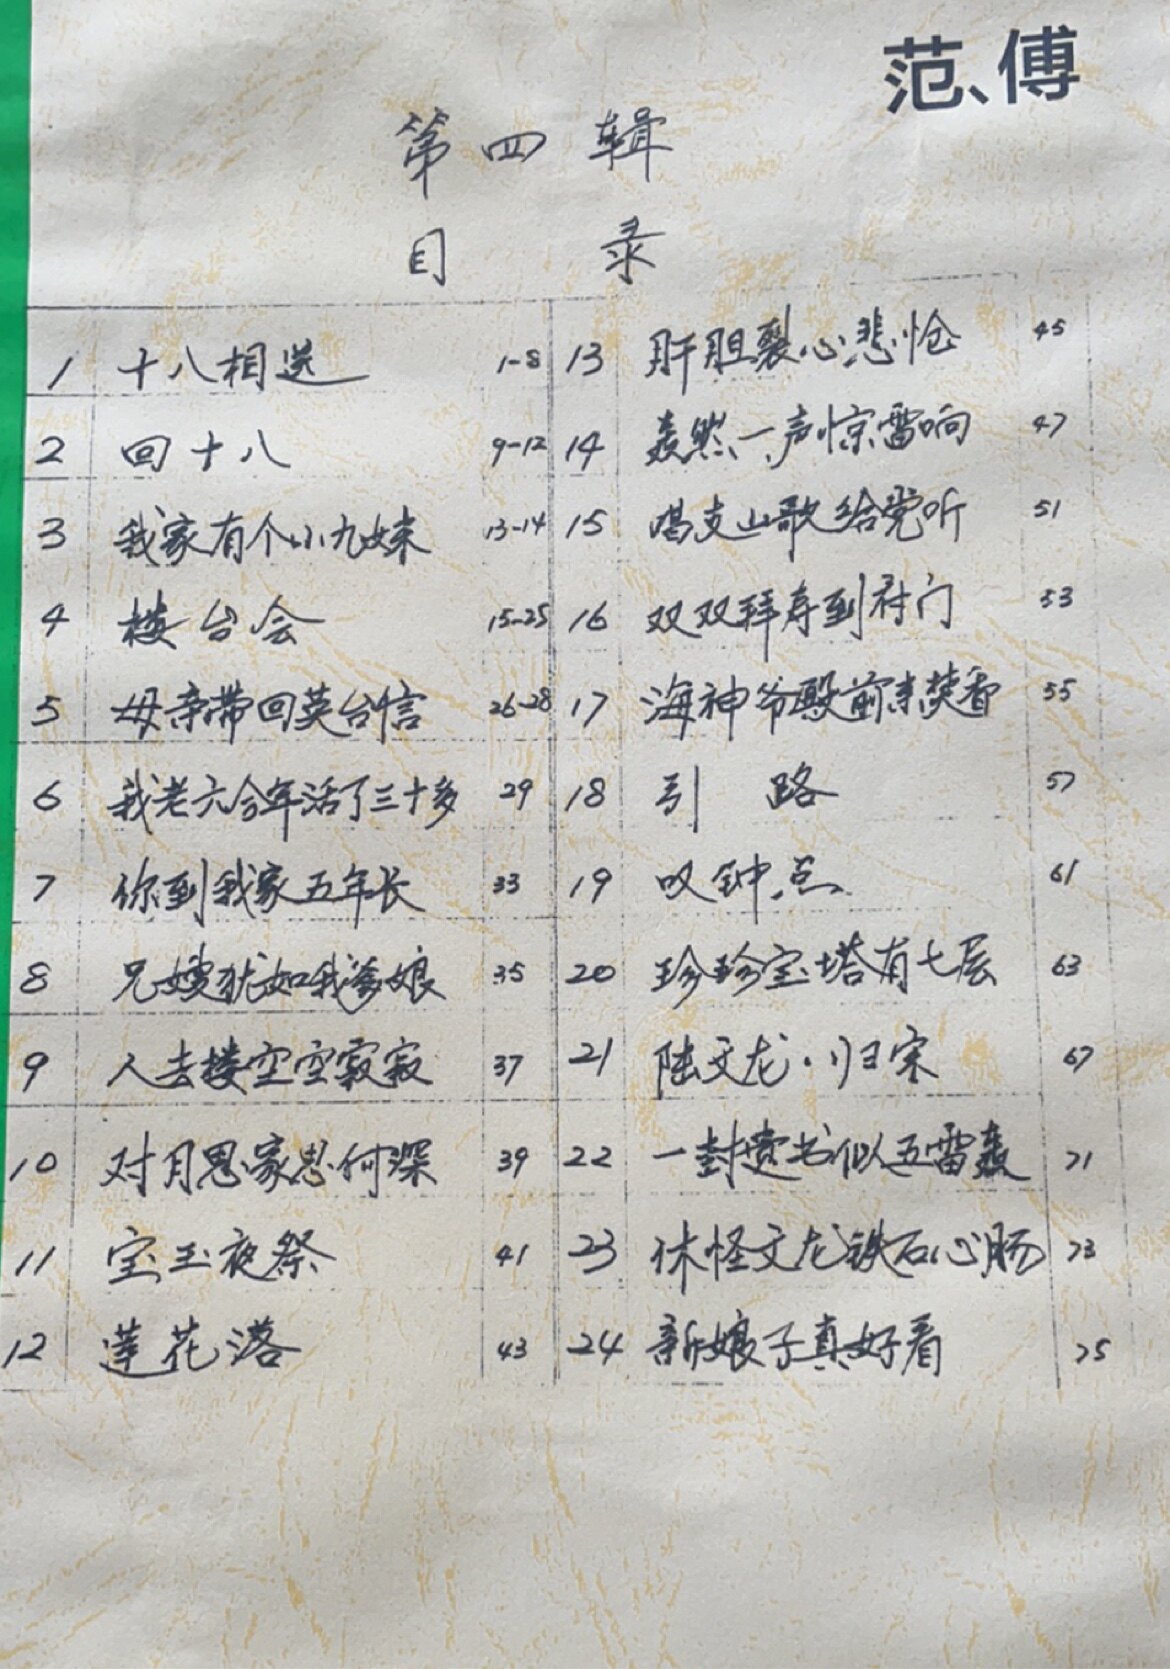 范、傅
第四辑
目录
1 十八相送 1-8
2 回十八 9-12
3 我家有个小九妹 13-14
4 楼台会 15-25
5 母亲带回英台信 26-28
6 我老六今年活了三十多 29
7 你到我家五年长 33
8 兄嫂犹如我爹娘 35
9 人去楼空空寂寂 37
10 对月思家思何深 39
11 宝玉夜祭 41
12 莲花落 43
13 肝胆裂心悲怆 45
14 轰然一声惊雷响 47
15 唱支山歌给党听 51
16 双双拜寿到府门 53
17 海神爷殿前来焚香 55
18 引路 57
19 叹钟点 61
20 珍珍宝塔有七层 63
21 陆文龙·归宋 67
22 一封遗书似五雷轰 71
23 休怪文龙铁石心肠 73
24 新娘子真好看 75